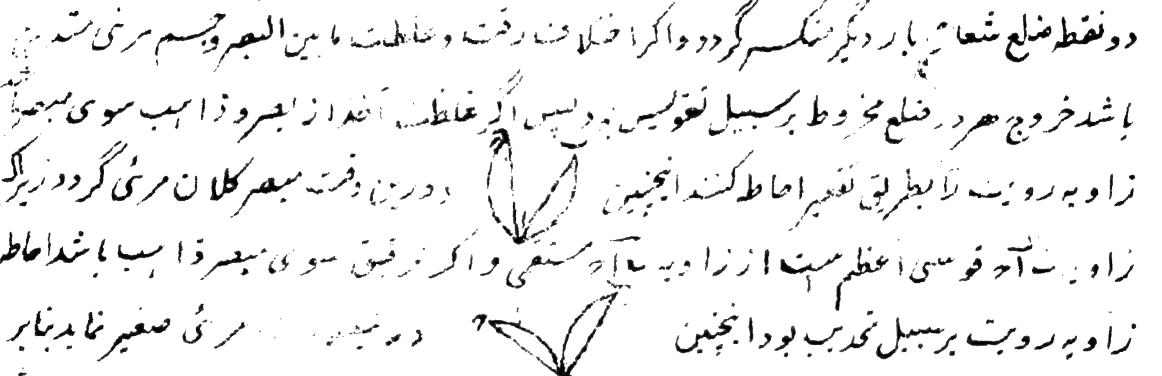 دو نقطه ضلع شعاع بار دیگر منکسر گردد و اگر اختلاف رقت و غلظت ما بین البصر و جسم مرئی متدرج
باشد خروج هر دو ضلع مخروط بر سبیل تقویس بود پس اگر غلظت آخذ از بصر و ذاهب سوی مبصر
زاویه رویت را بطریق تقعیر احاطه کنند اینچنین درین وقت مبصر کلان مرئی گردد زیراکه
زاویه قوسی اعظم است از زاویه مستقیمی و اگر ترقیق سوی مبصر ذاهب باشد احاطه
زاویه رویت بر سبیل تحدیب بود اینچنین مرئی صغیر نماید بنابر